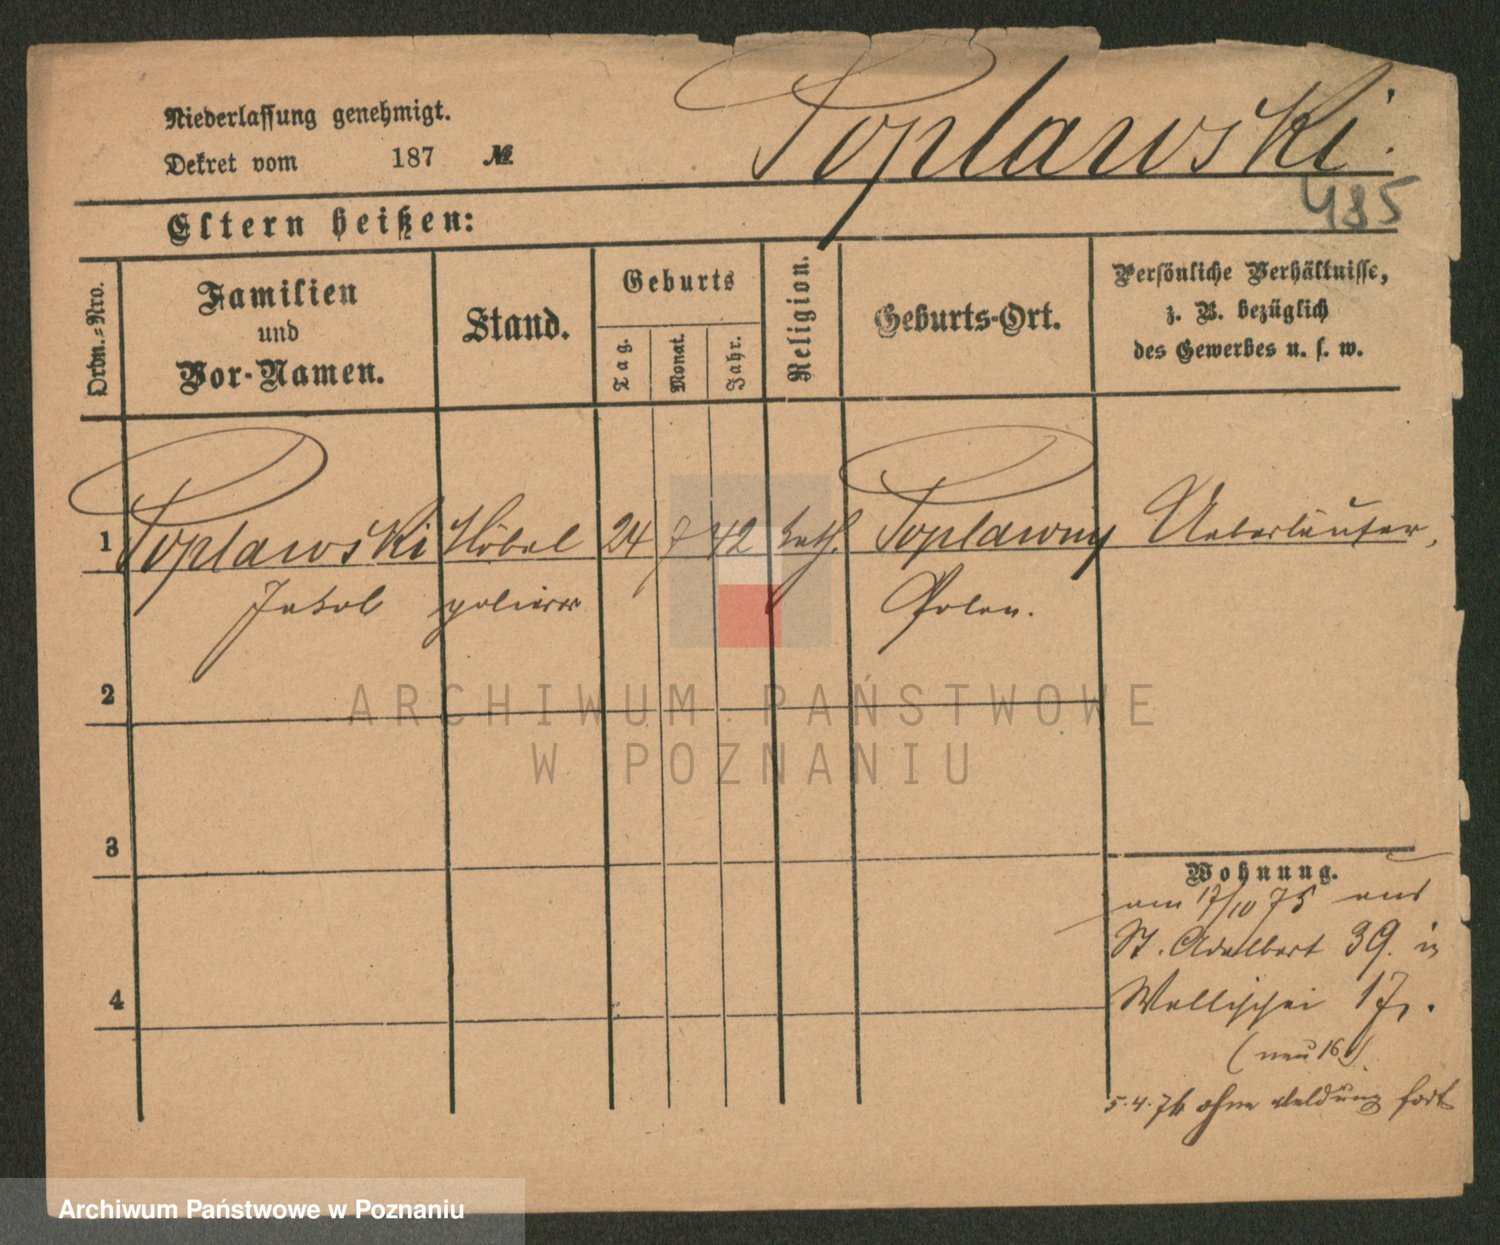 Niederlassung genehmigt.
Dekret vom 187 №
Poplawski.
485
Eltern heißen:
Ordn.-Nro.
Familien
und
Vor-Namen.
Stand.
Geburts
Tag.
Monat.
Jahr.
Religion.
Geburts-Ort.
Persönliche Verhältnisse,
z. B. bezüglich
des Gewerbes u. s. w.
1 Poplawski Möbel 24 7 42 kath. Poplawny Ueberläufer,
Jakob polierer Polen.
2
ARCHIWUM PAŃSTWOWE
W POZNANIU
3
Wohnung.
am 17/10 75 aus
St. Adalbert 39. in
4
Wallischei 17,.
(neu 16)
5.4.76 ohne Meldung fort
Archiwum Państwowe w Poznaniu